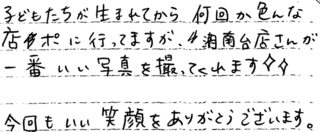 子どもたちが生まれてから何回か色んな
店舗に行ってますが、湘南台店さんが
一番いい写真を撮ってくれます✧✧
今回もいい笑顔をありがとうございます。